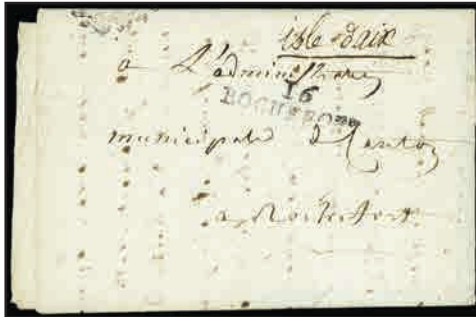 isle d'aix
a L'administration
16
ROCHEFORT
municipale du Canton
a Rochefort